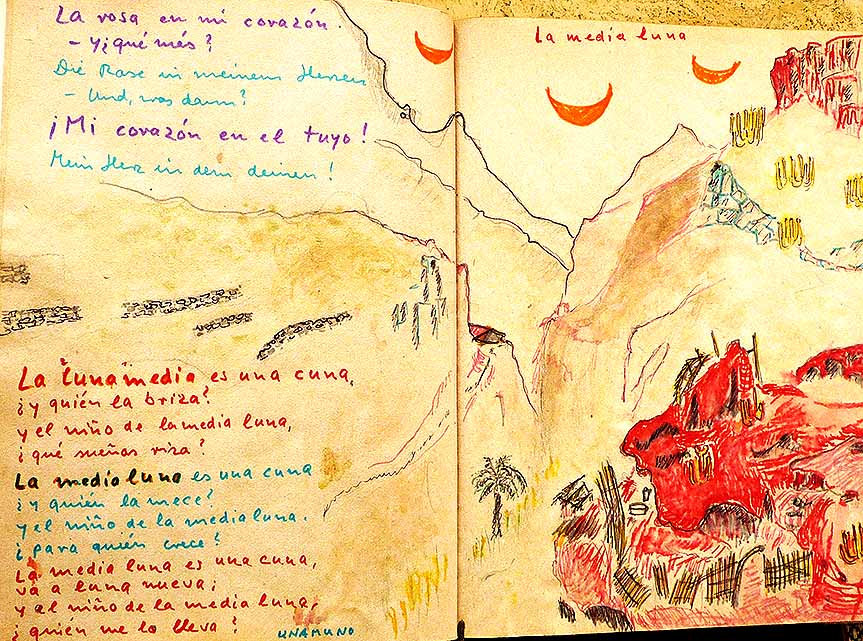 La rosa en mi corazón.
- y ¿qué más?
Die Rose in meinem Herzen
- Und, was dann?
¡Mi corazón en el tuyo!
Mein Herz in dem deinen!
La luna media es una cuna,
¿y quién la briza?
y el niño de la media luna,
¿qué sueños riza?
La media luna es una cuna
¿y quién la mece?
y el niño de la media luna.
¿para quién crece?
La media luna es una cuna,
va a luna nueva;
y al niño de la media luna,
¿quién me lo lleva?
UNAMUNO
La media luna